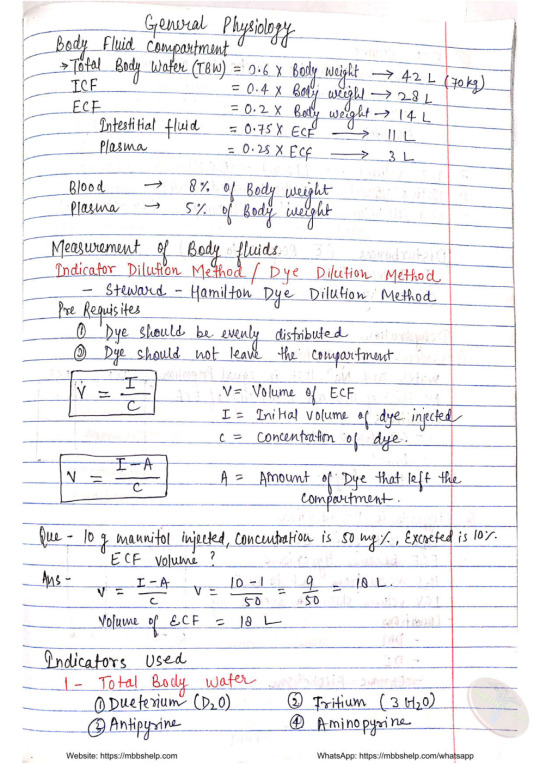 General Physiology
Body Fluid Compartment
→ Total Body Water (TBW) = 0.6 X Body weight → 42 L (70 kg)
ICF = 0.4 X Body weight → 28 L
ECF = 0.2 X Body weight → 14 L
Intestitial fluid = 0.75 X ECF → 11 L
Plasma = 0.25 X ECF → 3 L
Blood → 8% of Body weight
Plasma → 5% of Body weight
Measurement of Body fluids.
Indicator Dilution Method / Dye Dilution Method
- Steward - Hamilton Dye Dilution Method
Pre Requisites
① Dye should be evenly distributed
② Dye should not leave the compartment
V = I / C
V = Volume of ECF
I = Initial volume of dye injected
C = Concentration of dye.
V = I - A / C
A = Amount of Dye that left the
compartment.
Que - 10 g mannitol injected, Concentration is 50 mg%, Excreted is 10%.
ECF volume ?
Ans - V = I - A / C V = 10 - 1 / 50 = 9 / 50 = 18 L.
Volume of ECF = 18 L
Indicators Used
1 - Total Body Water
① Dueterium (D2O) ② Tritium (3 H2O)
③ Antipyrine ④ Aminopyrine
Website: https://mbbshelp.com WhatsApp: https://mbbshelp.com/whatsapp